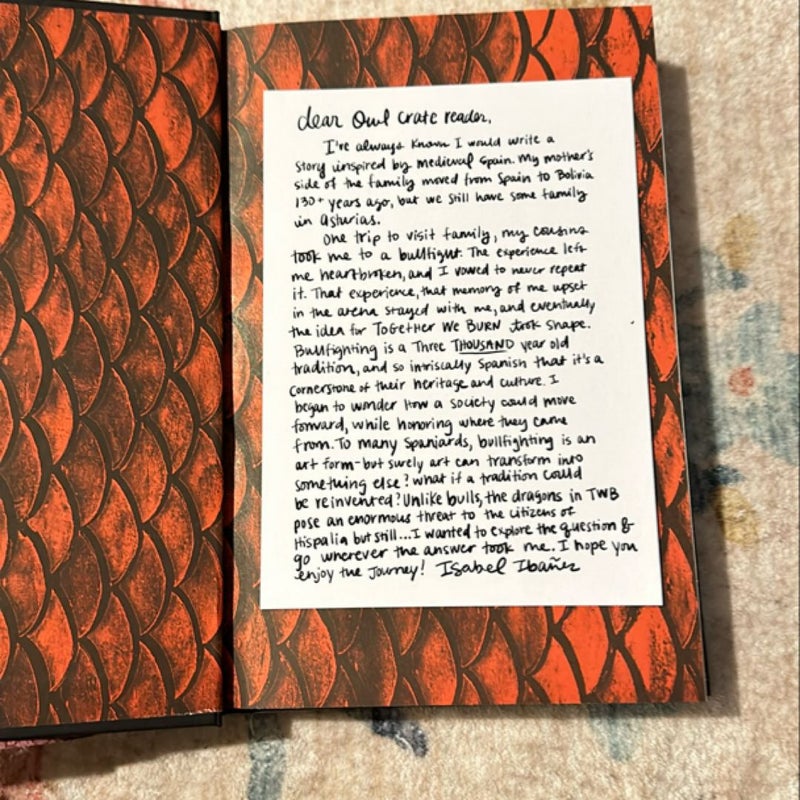 dear Owl Crate reader,
I've always known I would write a
story inspired by medieval Spain. My mother's
side of the family moved from Spain to Bolivia
130+ years ago, but we still have some family
in Asturias.
One trip to visit family, my cousins
took me to a bullfight. The experience left
me heartbroken, and I vowed to never repeat
it. That experience, that memory of me upset
in the arena stayed with me, and eventually
the idea for TOGETHER WE BURN took shape.
Bullfighting is a Three THOUSAND year old
tradition, and so intriscally Spanish that it's a
cornerstone of their heritage and culture. I
began to wonder how a society could move
forward, while honoring where they came
from. To many Spaniards, bullfighting is an
art form-but surely art can transform into
something else? What if a tradition could
be reinvented? Unlike bulls, the dragons in TWB
pose an enormous threat to the citizens of
Hispalia but still...I wanted to explore the question &
go wherever the answer took me. I hope you
enjoy the journey! Isabel Ibañez